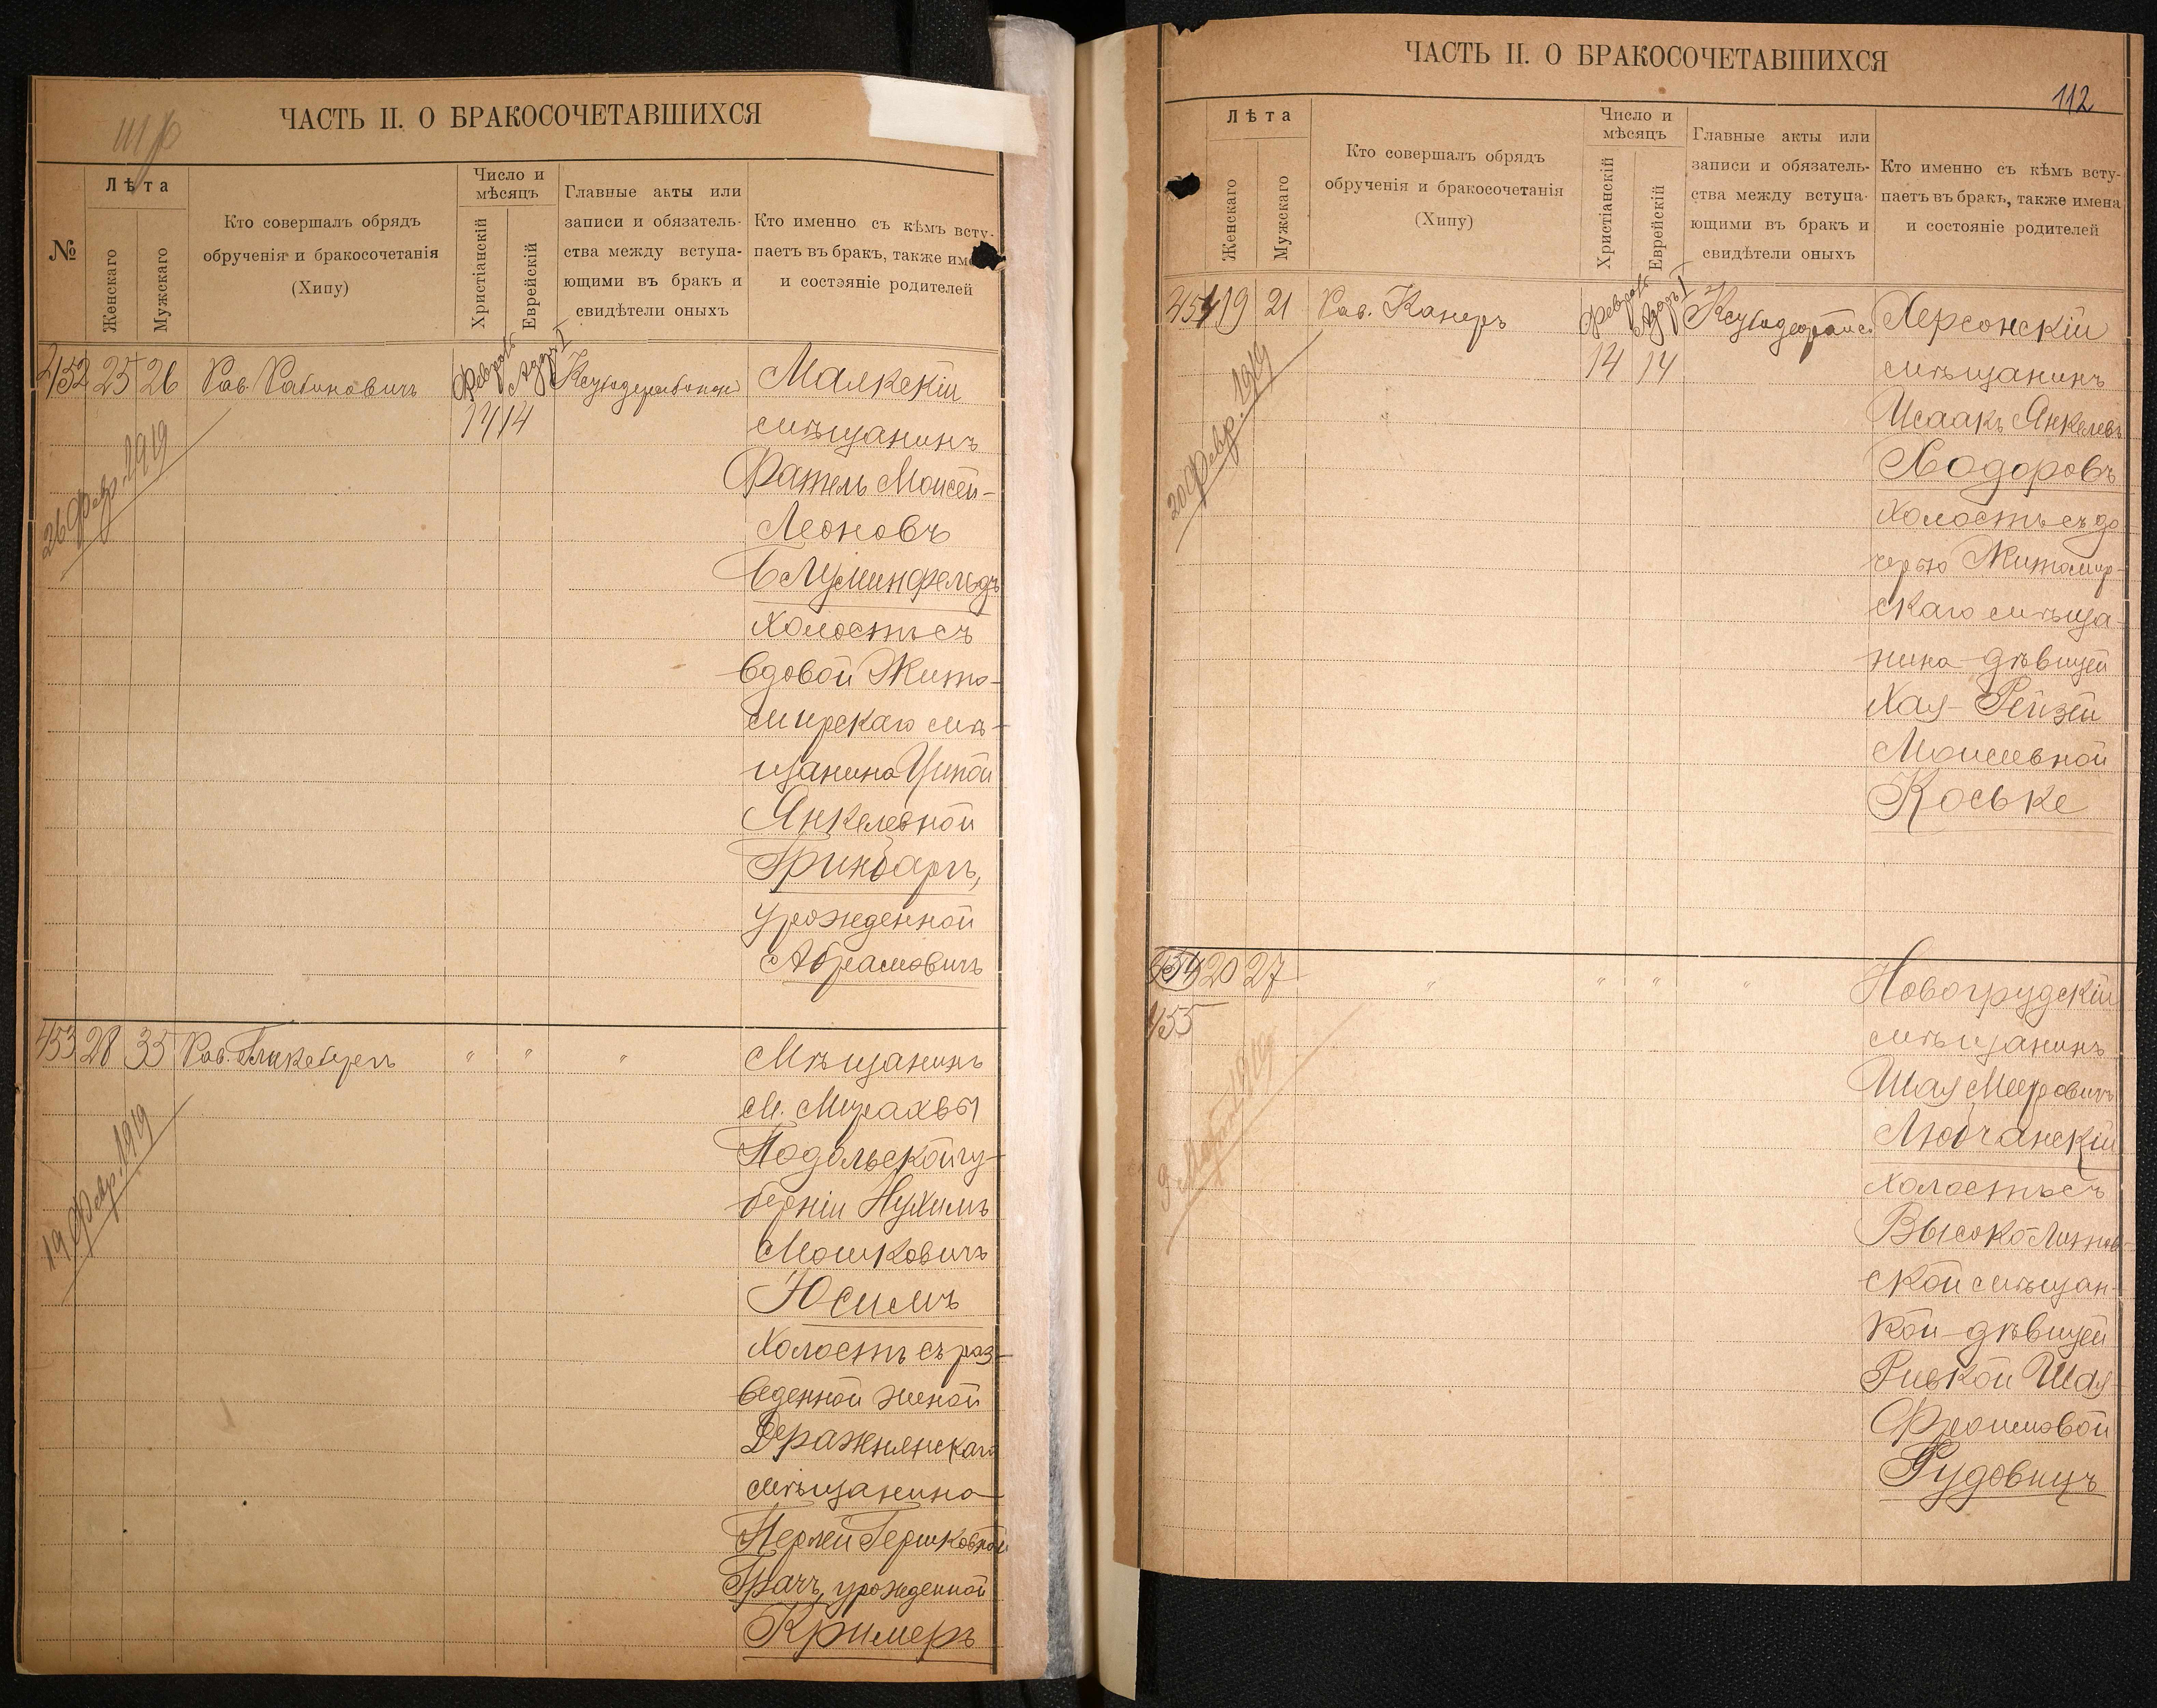 ЧАСТЬ II. О БРАКОСОЧЕТАВШИХСЯ
№
Лѣта
Женскаго
Мужскаго
Кто совершалъ обрядъ
обрученія и бракосочетанія
(Хипу)
Число и
мѣсяцъ
Христіанскій
Еврейскій
Главные акты или
записи и обязатель-
ства между вступа-
ющими въ бракъ и
свидѣтели оныхъ
Кто именно съ кѣмъ всту-
паетъ въ бракъ, также име
и состэяніе родителей
452 25 26 Рав. Рабиновичъ Февраль Адаръ I
14 14
26 Февр. 1919
мѣщанинъ
Моисей-
Леоновъ
Блуминфельдъ
холостъ съ
вдовой Жито-
мирскаго мѣ-
щанина
Янкелевной
Гринбаргъ,
урожденной
Абрамовичъ
453 28 35 Рав. " " "
19 Февр. 1919
Мѣщанинъ
м. Мурахвы
Подольской гу-
берніи Нухимъ
Мошковичъ
Юсимъ
Холостъ съ раз-
веденной женой
Деражнянскаго
мѣщанина
Перлей Гершковной
Грачъ, урожденной
Кримеръ
ЧАСТЬ II. О БРАКОСОЧЕТАВШИХСЯ
112
Лѣта
Женскаго
Мужскаго
Кто совершалъ обрядъ
обрученія и бракосочетанія
(Хипу)
Число и
мѣсяцъ
Христіанскій
Еврейскій
Главные акты или
записи и обязатель-
ства между вступа-
ющими въ бракъ и
свидѣтели оныхъ
Кто именно съ кѣмъ всту-
паетъ въ бракъ, также имена
и состояніе родителей
454 19 21 Рав. Канеръ Февраль Адаръ I
14 14
20 Февр. 1919
Херсонскій
мѣщанинъ
Исаакъ Янкелевъ
Ходоровъ
холостъ съ до
черью Житомир-
скаго мѣща-
нина дѣвицей
Хая-Рейзей
Моисеевной
Коське
454 20 27 " " " "
455
1919
Новогрудскій
мѣщанинъ
Шая Мееровичъ
Любчанскій
холостъ съ
Высоколитов-
ской мѣщан-
кой дѣвицей
Ривкой Шая-
Фроимовой
Рудовицъ